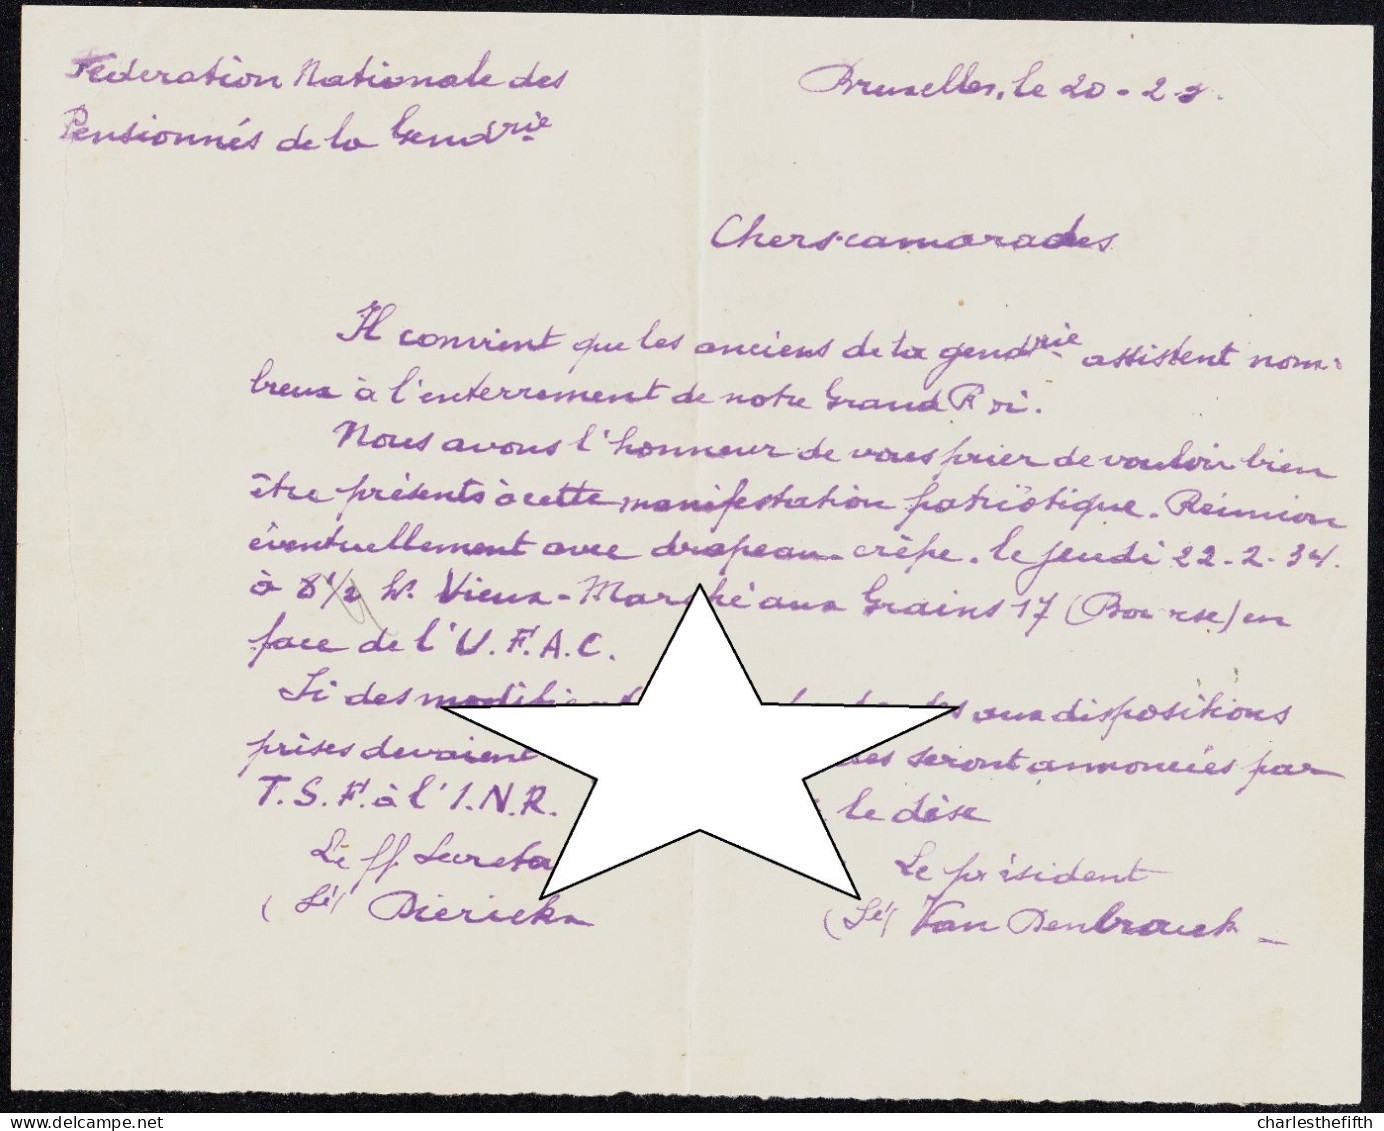 Fédération Nationale des
Pensionnés de la Gendrie
Bruxelles, le 20-2-
Chers camarades
Il convient que les anciens de la gendrie assistent nom-
breux à l'enterrement de notre Grand Roi.
Nous avons l'honneur de vous prier de vouloir bien
être présents à cette manifestation patriotique. Réunion
éventuellement avec drapeau-crêpe. le jeudi 22-2-34.
à 8 1/2 h. Vieux-Marché aux Grains 17 (Bourse) en
face de l'U.F.A.C.
Si des aux dispositions
prises devaient seront annoncées par
T.S.F. à l'I.N.R. le
Le ff
Le président
(Sé) Dierickx
(Sé) Van Denbrouck
charlesthefifth